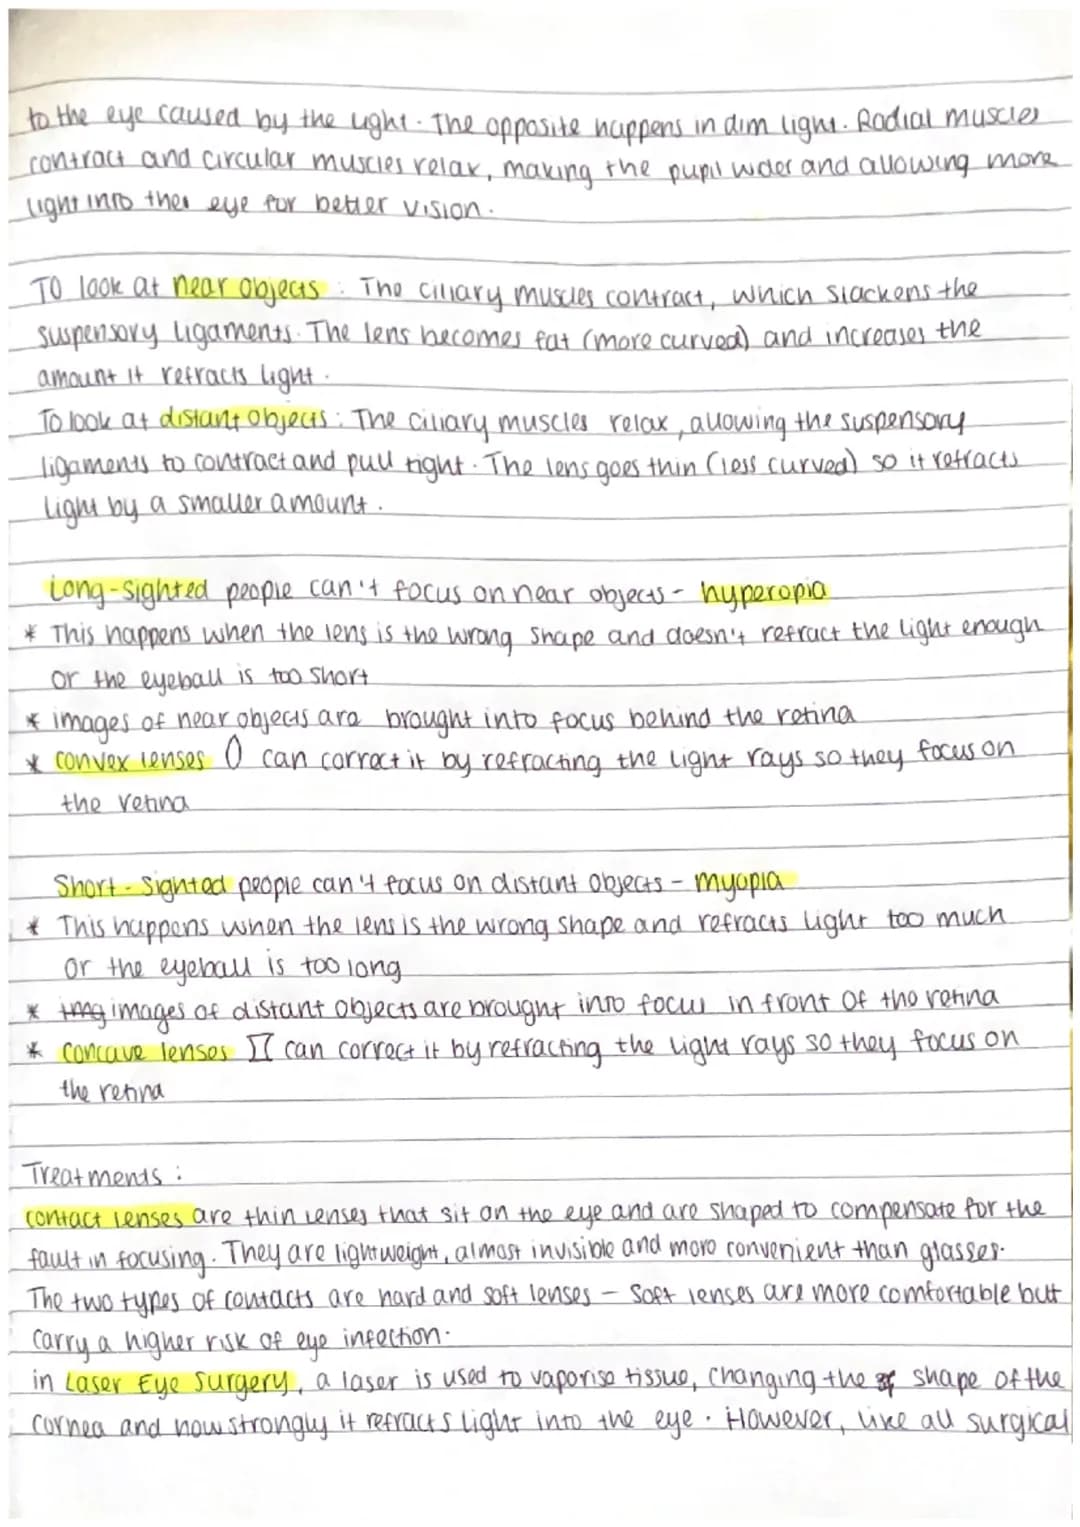 to the eye caused by the light. The opposite happens in dim light. Radial muscles
contract and circular muscles relax, making the pupil wider and allowing more
light into the eye for better vision.
To look at near objects: The ciliary muscles contract, which slackens the
suspensory ligaments. The lens becomes fat (more curved) and increases the
amount it refracts light.
To look at distant objects: The ciliary muscles relax, allowing the suspensory
ligaments to contract and pull tight. The lens goes thin (less curved) so it refracts
light by a smaller amount.
Long-sighted people can't focus on near objects - hyperopia
* This happens when the lens is the wrong shape and doesn't refract the light enough
or the eyeball is too short
* images of near objects are brought into focus behind the retina
* convex lenses () can correct it by refracting the light rays so they focus on
the retina
Short-sighted people can't focus on distant objects - myopia
* This happens when the lens is the wrong shape and refracts light too much
or the eyeball is too long
* images of distant objects are brought into focus in front of the retina
* concave lenses )( can correct it by refracting the light rays so they focus on
the retina
Treatments:
contact lenses are thin lenses that sit on the eye and are shaped to compensate for the
fault in focusing. They are lightweight, almost invisible and more convenient than glasses.
The two types of contacts are hard and soft lenses - soft lenses are more comfortable but
carry a higher risk of eye infection.
in Laser Eye surgery, a laser is used to vaporise tissue, changing the shape of the
cornea and how strongly it refracts light into the eye. However, like all surgical